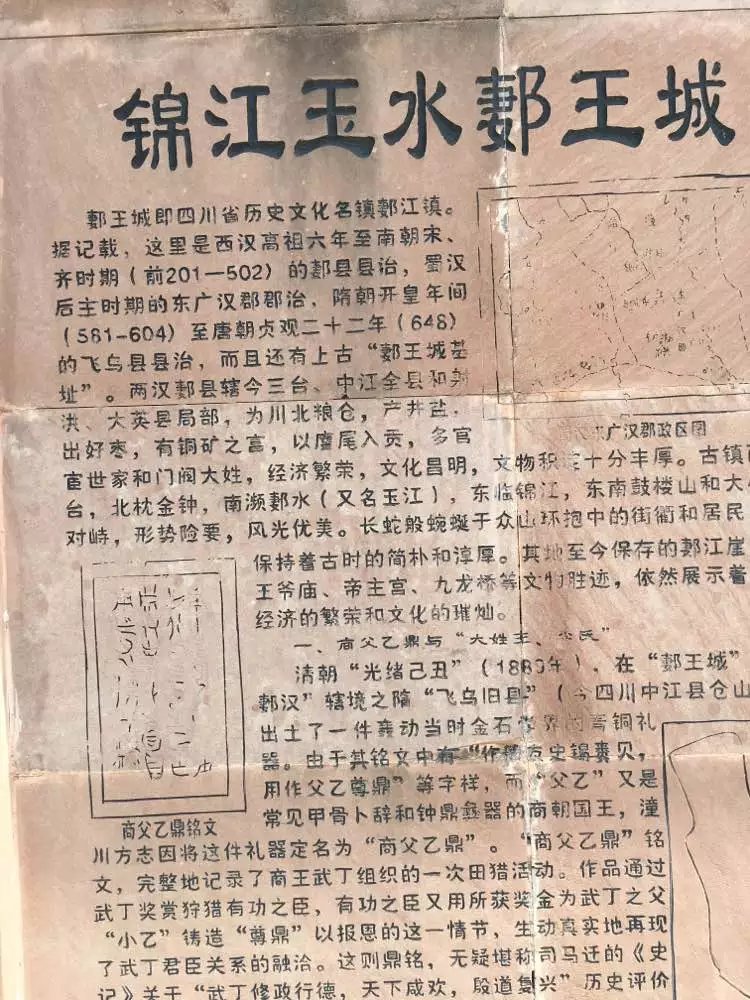 锦江玉水郪王城
郪王城即四川省历史文化名镇郪江镇。
据记载，这里是西汉高祖六年至南朝宋、
齐时期（前201—502）的郪县县治，蜀汉
后主时期的东广汉郡郡治，隋朝开皇年间
（581-604）至唐朝贞观二十二年（648）
的飞乌县县治，而且还有上古“郪王城基
址”。两汉郪县辖今三台、中江全县和射
洪、大英县局部，为川北粮仓，产井盐，
出好枣，有铜矿之富，以麈尾入贡，多官
广汉郡政区图
宦世家和门阀大姓，经济繁荣，文化昌明，文物积淀十分丰厚。古镇
台，北枕金钟，南濒郪水（又名玉江），东临锦江，东南鼓楼山和大
对峙，形势险要，风光优美。长蛇般蜿蜒于众山环抱中的街衢和居民
保持着古时的简朴和淳厚。其地至今保存的郪江崖
王爷庙、帝主宫、九龙桥等文物胜迹，依然展示着
经济的繁荣和文化的璀灿。
一、商父乙鼎与“大姓王、
清朝“光绪己丑”（1889年），在“郪王城”
郪汉”辖境之隋“飞乌旧县”（今四川中江县仓山
出土了一件轰动当时金石学界的青铜礼
器。由于其铭文中有“作册友史锡赉贝，
用作父乙尊鼎”等字样，而“父乙”又是
常见甲骨卜辞和钟鼎彝器的商朝国王，潼
商父乙鼎铭文
川方志因将这件礼器定名为“商父乙鼎”。“商父乙鼎”铭
文，完整地记录了商王武丁组织的一次田猎活动。作品通过
武丁奖赏狩猎有功之臣，有功之臣又用所获奖金为武丁之父
“小乙”铸造“尊鼎”以报恩的这一情节，生动真实地再现
了武丁君臣关系的融洽。这则鼎铭，无疑堪称司马迁的《史
记》关于“武丁修政行德，天下咸欢，殷道复兴”历史评价